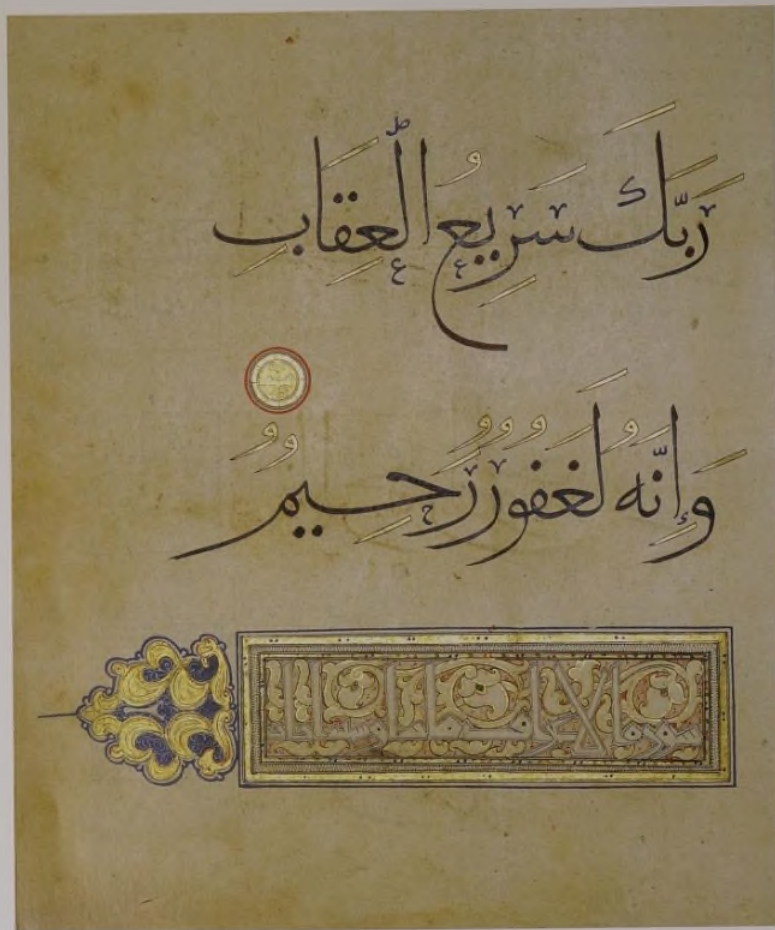 رَبَّكَ سَرِيعُ الْعِقَابِ
وَإِنَّهُ لَغَفُورٌ رَحِيمٌ
سورة الاعراف